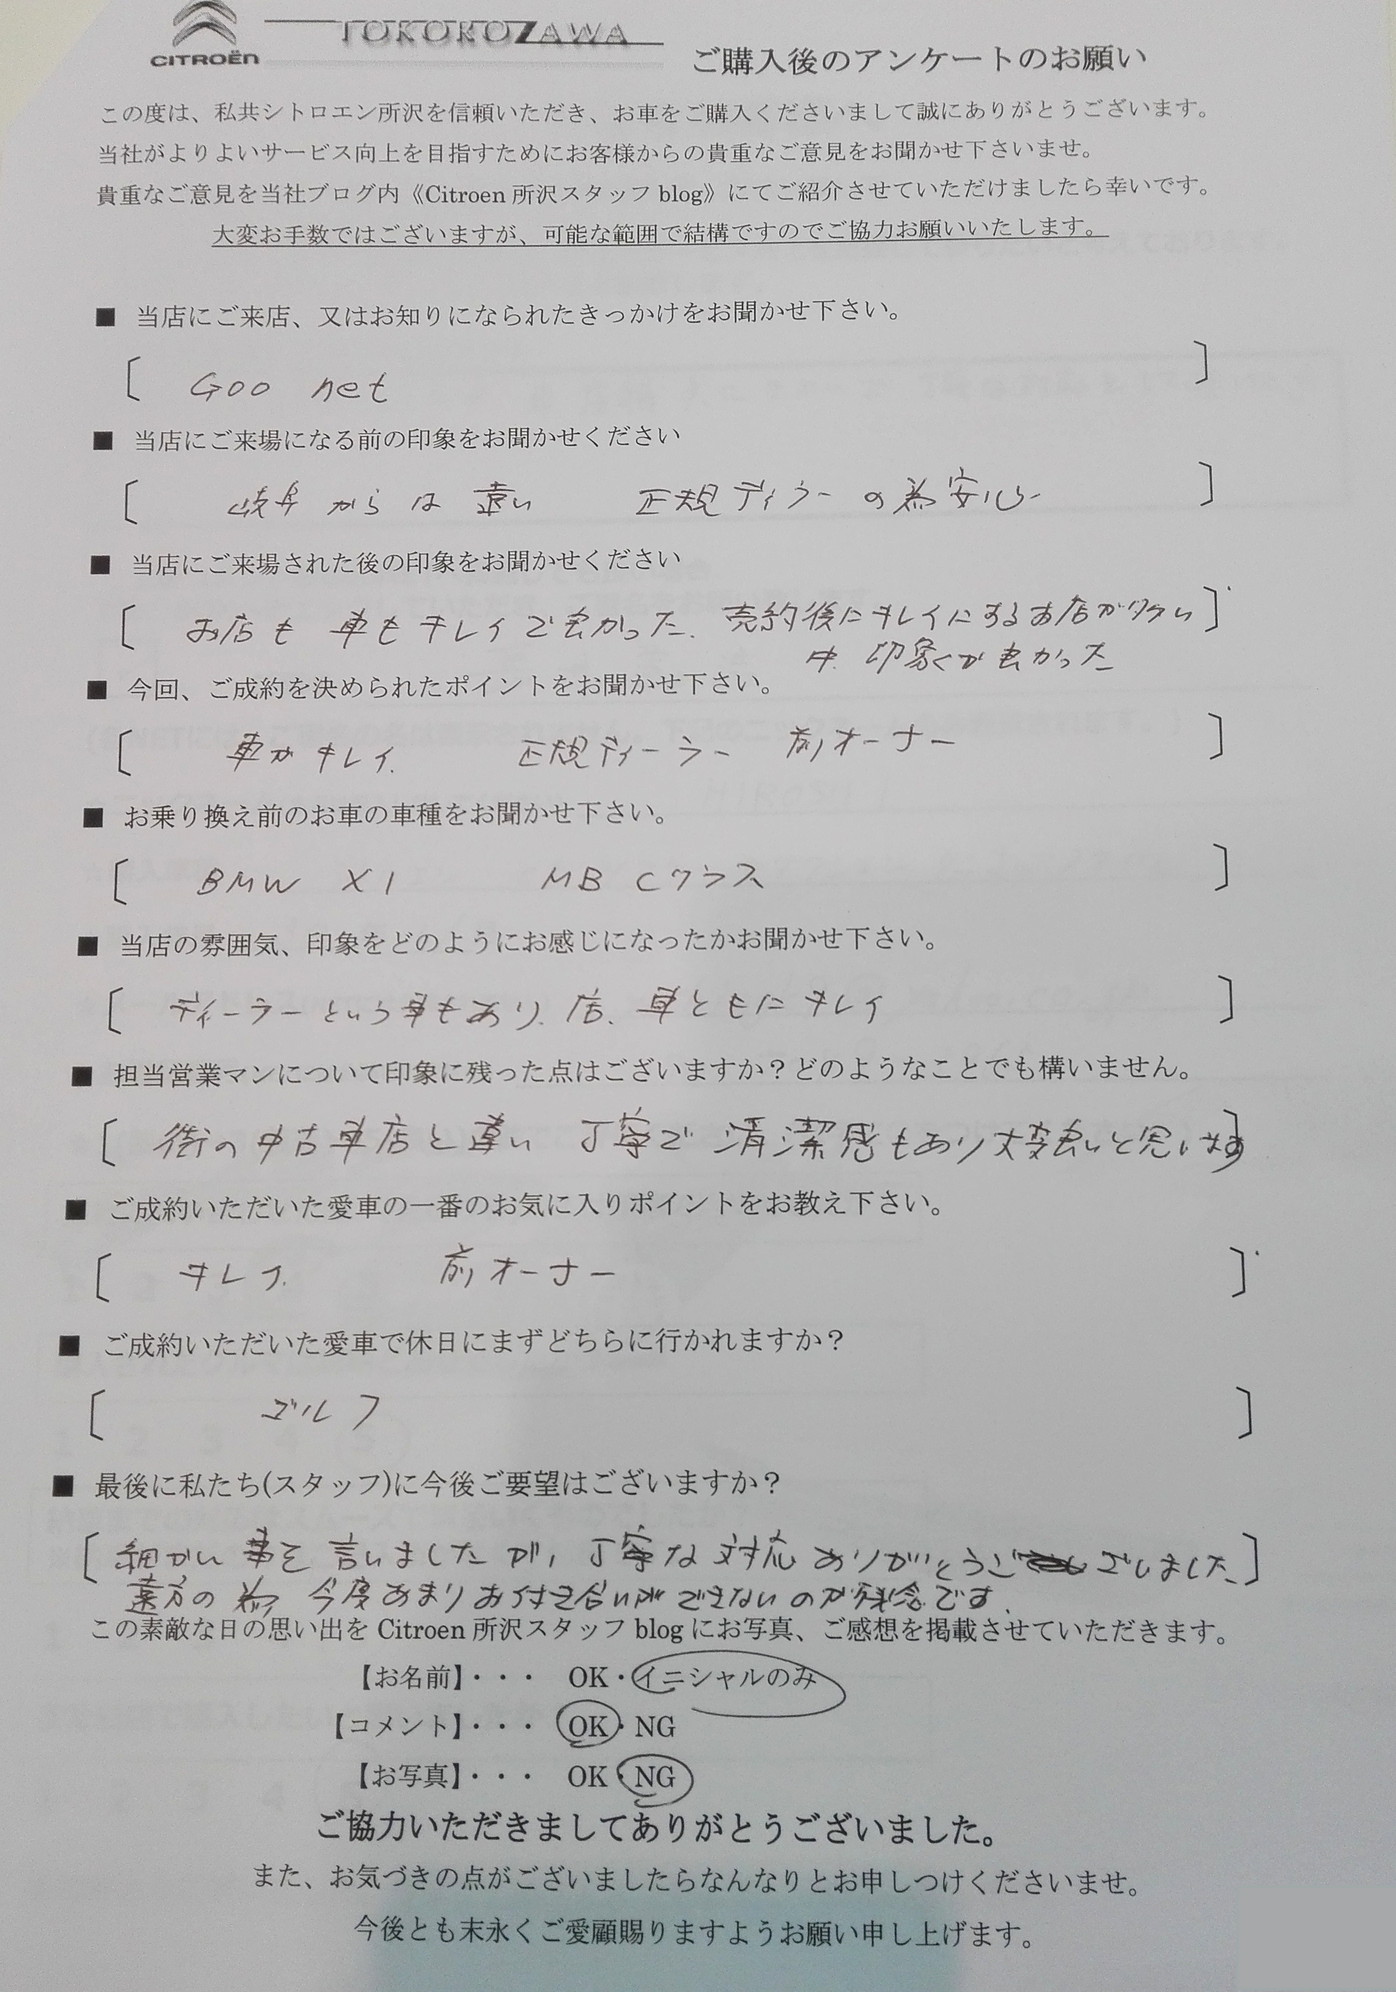 CITROËN
TOKOROZAWA
ご購入後のアンケートのお願い
この度は、私共シトロエン所沢を信頼いただき、お車をご購入くださいまして誠にありがとうございます。
当社がよりよいサービス向上を目指すためにお客様からの貴重なご意見をお聞かせ下さいませ。
貴重なご意見を当社ブログ内《Citroen 所沢スタッフ blog》にてご紹介させていただけましたら幸いです。
大変お手数ではございますが、可能な範囲で結構ですのでご協力お願いいたします。
■ 当店にご来店、又はお知りになられたきっかけをお聞かせ下さい。
[ Goo net ]
■ 当店にご来場になる前の印象をお聞かせください
[ 岐阜からは遠い 正規ディラーの為安心 ]
■ 当店にご来場された後の印象をお聞かせください
[ お店も車もキレイで良かった、売約後にキレイにするお店が多い ]
中、印象が良かった
■ 今回、ご成約を決められたポイントをお聞かせ下さい。
[ 車がキレイ、 正規ディーラー 前オーナー ]
■ お乗り換え前のお車の車種をお聞かせ下さい。
[ BMW X1 MB Cクラス ]
■ 当店の雰囲気、印象をどのようにお感じになったかお聞かせ下さい。
[ ディーラーという事もあり、店、車ともにキレイ ]
■ 担当営業マンについて印象に残った点はございますか？どのようなことでも構いません。
[ 街の中古車店と違い 丁寧で清潔感もあり大変良いと思います ]
■ ご成約いただいた愛車の一番のお気に入りポイントをお教え下さい。
[ キレイ、 前オーナー ]
■ ご成約いただいた愛車で休日にまずどちらに行かれますか？
[ ゴルフ ]
■ 最後に私たち(スタッフ)に今後ご要望はございますか？
[ 細かい事を言いましたが、丁寧な対応ありがとうございました ]
遠方の為 今度あまりお付き合いができないのが残念です、
この素敵な日の思い出を Citroen 所沢スタッフ blog にお写真、ご感想を掲載させていただきます。
【お名前】・・・ OK・イニシャルのみ
【コメント】・・・ OK・NG
【お写真】・・・ OK・NG
ご協力いただきましてありがとうございました。
また、お気づきの点がございましたらなんなりとお申しつけくださいませ。
今後とも末永くご愛顧賜りますようお願い申し上げます。